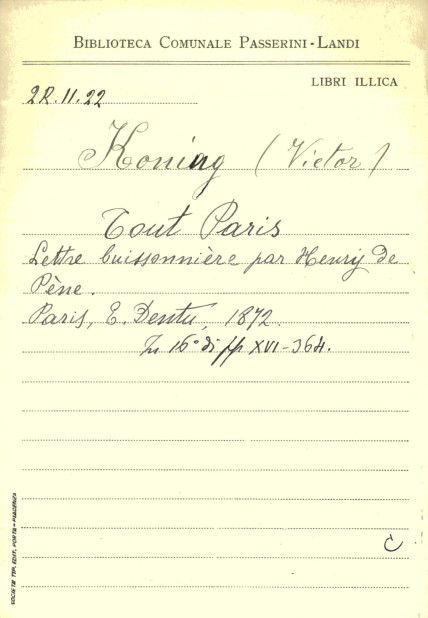 BIBLIOTECA COMUNALE PASSERINI-LANDI
LIBRI ILLICA
2R.11.22
Koning (Victor)
Tout Paris
Lettre buissonnière par Henry de
Pène.
Paris, E. Dentu, 1872.
In 16° di pp. XVI-364.
C
SOCIETÀ TIP. EDIT. PORTA - PIACENZA